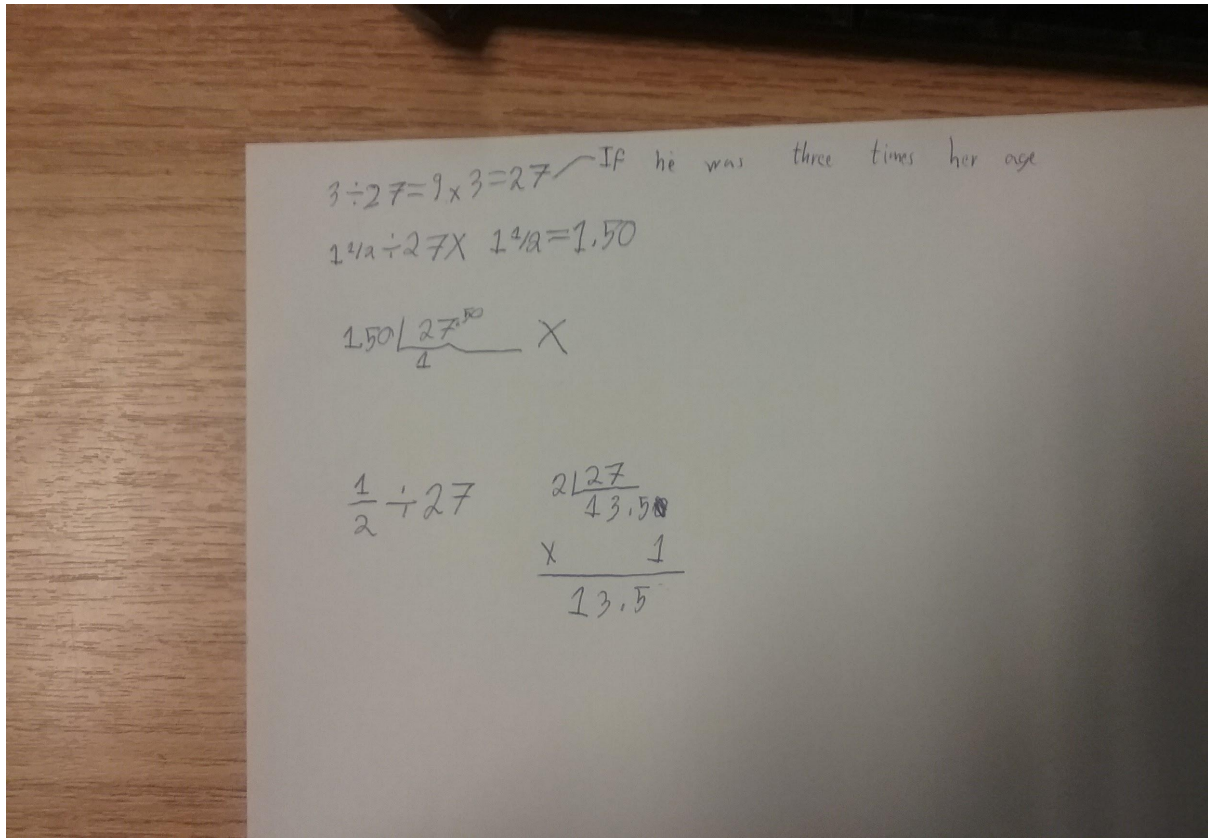 3÷27=9x3=27 If he was three times her age
1 1/2÷27X 1 1/2=1.50
1.50 27.50 X
1
1/2 ÷27 2 27
13.5
x 1
13.5